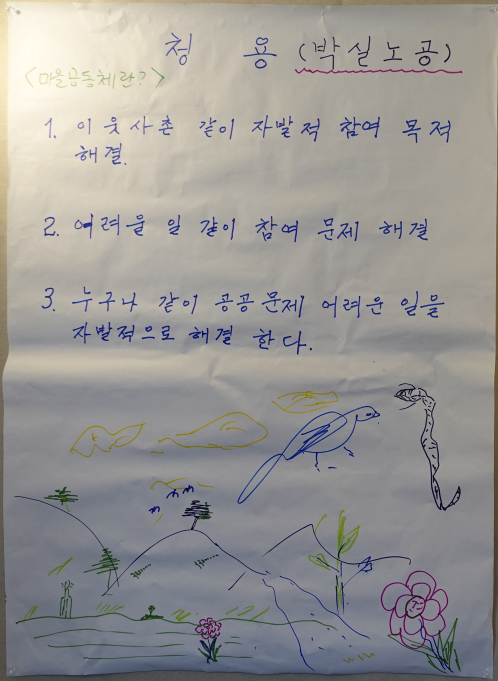 청 용 (박실노공)
<마을공동체란?>
1. 이웃사촌 같이 자발적 참여 목적
해결.
2. 어려울 일 같이 참여 문제 해결
3. 누구나 같이 공공문제 어려운 일을
자발적으로 해결 한다.